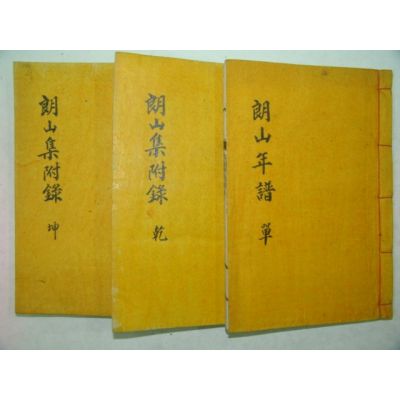 朗山年譜 單
朗山集附錄 乾
朗山集附錄 坤